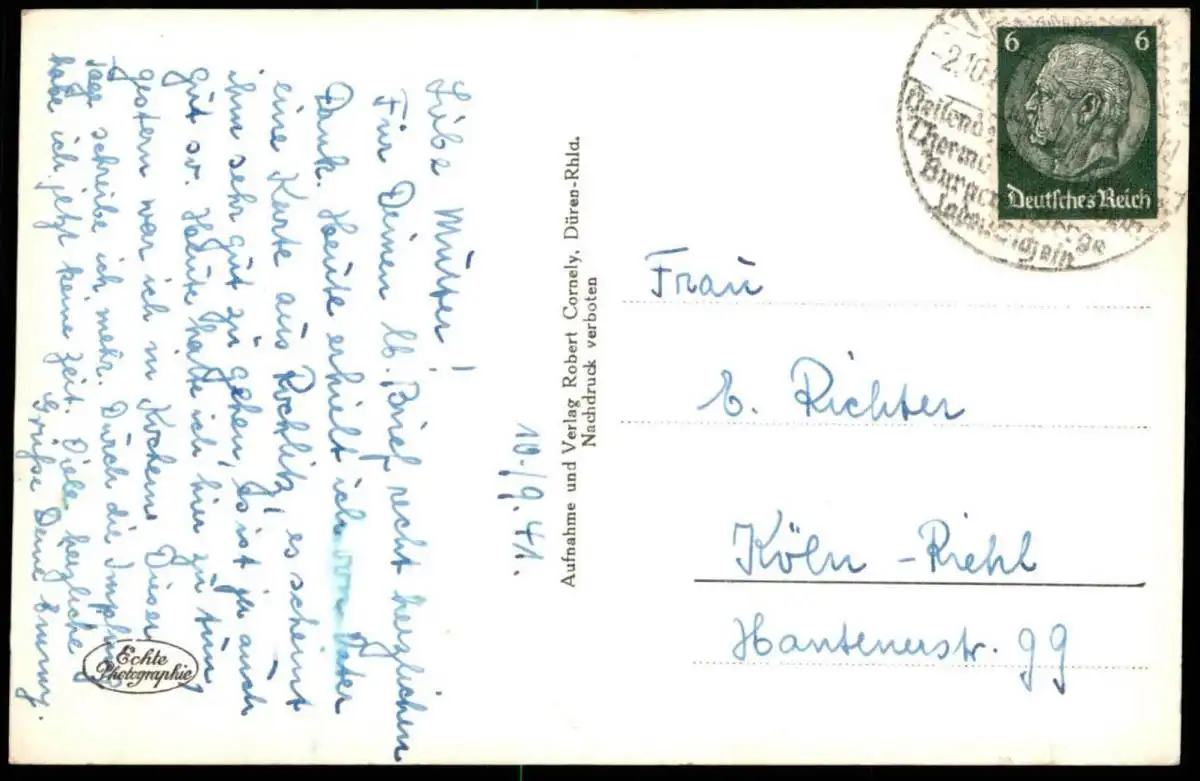 10./9.41.
Liebe Mutter!
Für Deinen lb. Brief recht herzlichen
Dank. Heute erhielt ich von Vater
eine Karte aus Rochlitz, es scheint
ihm sehr gut zu gehen, es ist ja auch
gut so. Heute hatte ich hier zu tun
gestern war ich in Kochem. Dieser
Tage schreibe ich mehr. Durch die Impfung
habe ich jetzt keine Zeit. Viele herzliche
Grüße Deine Emmy.
Echte
Photographie
Aufnahme und Verlag Robert Cornely, Düren-Rhld.
Nachdruck verboten
6 6
Deutsches Reich
-2.10
Heilend
Therma
Frau
E. Richter
Köln-Riehl
Xantenerstr. 99